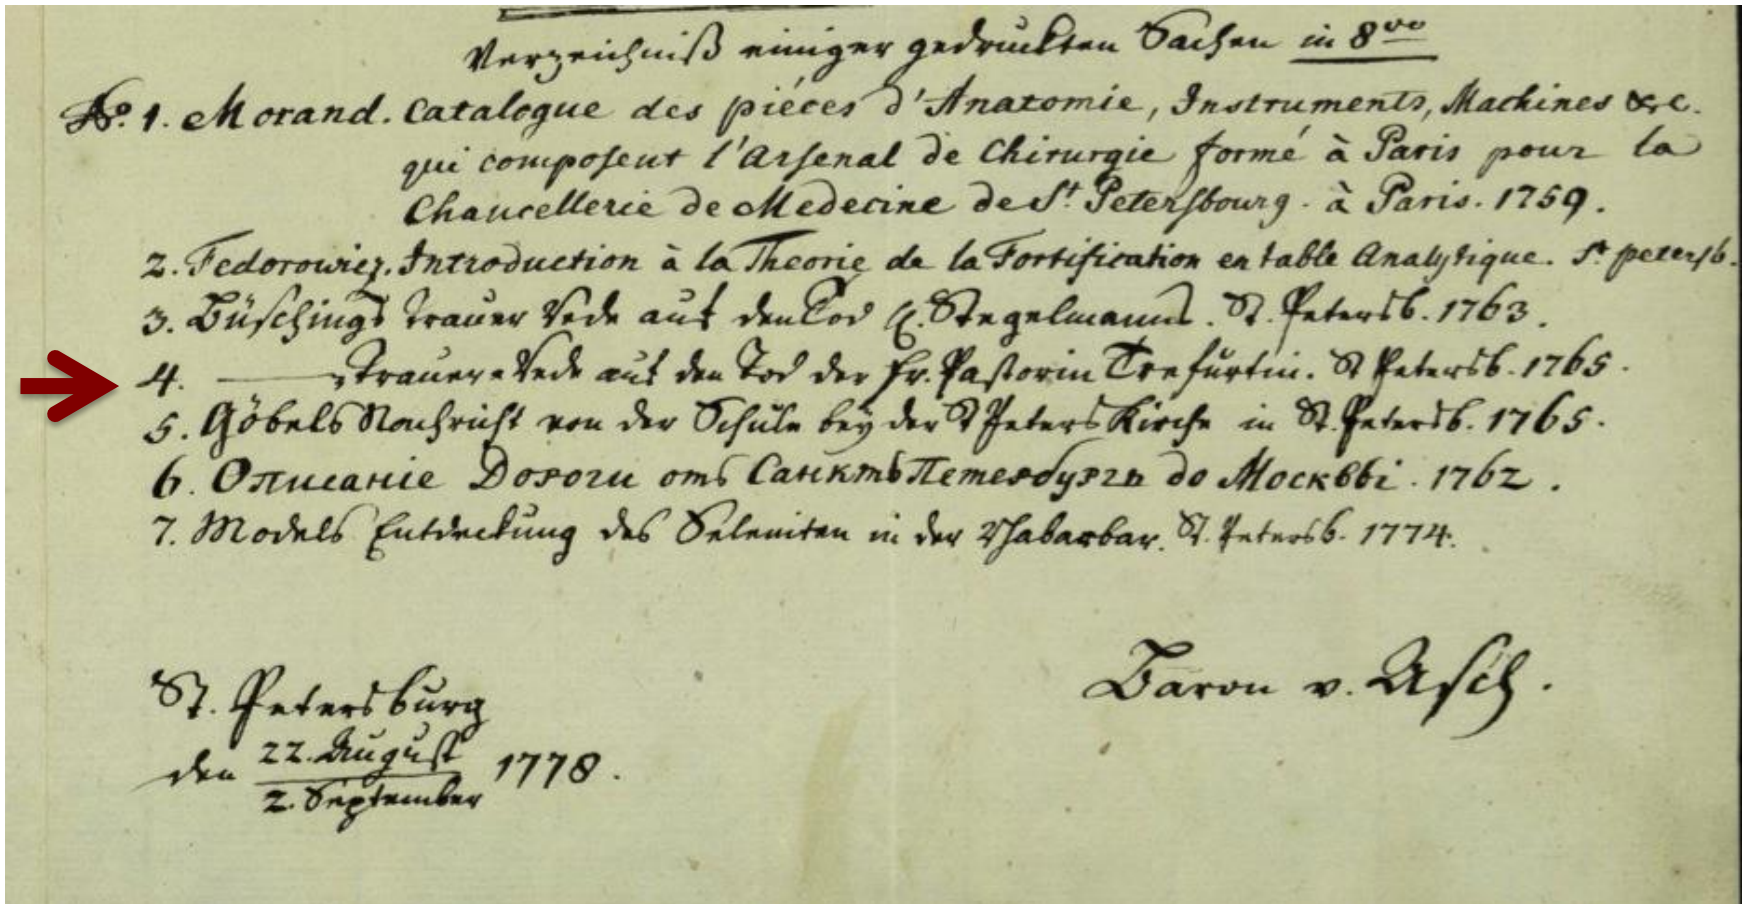 Verzeichniß einiger gedruckten Sachen in 8vo
No. 1. Morand. Catalogue des piéces d'Anatomie, Instruments, Machines &c.
qui composent l'Arsenal de Chirurgie formé à Paris pour la
Chancellerie de Medecine de St. Petersbourg. à Paris. 1759.
2. Fedorowiez. Introduction à la Theorie de la Fortification en table Analytique. St. petersb.
3. Büschings Trauer Rede auf den Tod H. Stegelmanns. St. Petersb. 1763.
4. ——— Trauer-Rede auf den Tod der Fr. Pastorin Trefurtin. St Petersb. 1765.
5. Göbels Nachricht von der Schule bey der St Peters Kirche in St. Petersb. 1765.
6. Описаніе Дороги отъ Санктъ Петербургъ до Москвы. 1762.
7. Models Entdeckung des Seleniten in der Rhabarbar. St. Petersb. 1774.
Baron v. Asch.
St. Petersburg
den 22. August
2. September 1778.